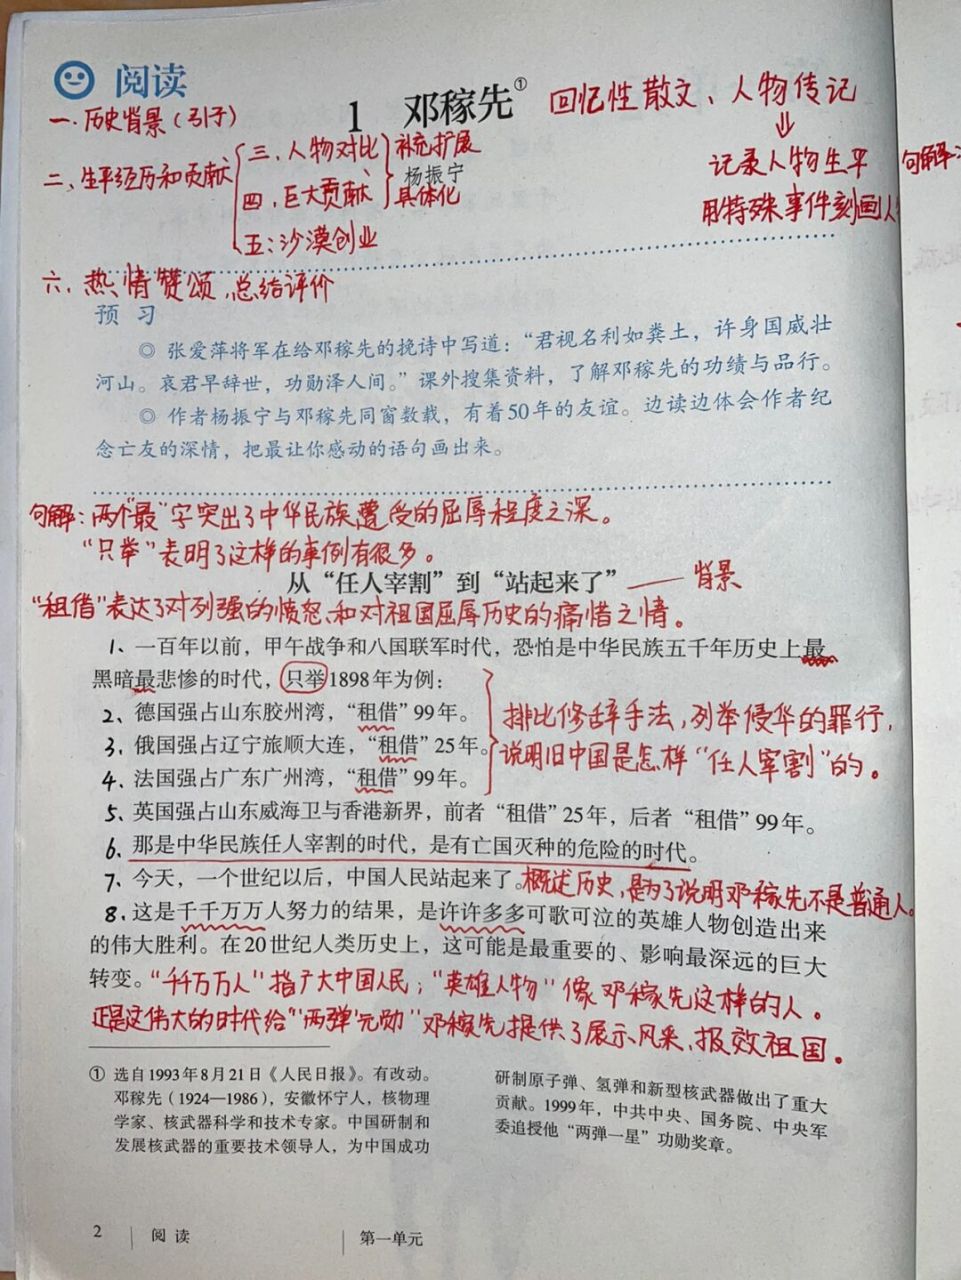 阅读
1 邓稼先①
回忆性散文、人物传记
⇓
记录人物生平
用特殊事件刻画人
句解:
一、历史背景(引子)
二、生平经历和贡献
三、人物对比
四、巨大贡献
五:沙漠创业
补充扩展
杨振宁
具体化
六、热情赞颂,总结评价
预 习
◎ 张爱萍将军在给邓稼先的挽诗中写道:“君视名利如粪土,许身国威壮
河山。哀君早辞世,功勋泽人间。”课外搜集资料,了解邓稼先的功绩与品行。
◎ 作者杨振宁与邓稼先同窗数载,有着50年的友谊。边读边体会作者纪
念亡友的深情,把最让你感动的语句画出来。
句解:两个“最”字突出了中华民族遭受的屈辱程度之深。
“只举”表明了这样的事例有很多。
从“任人宰割”到“站起来了” —— 背景
“租借”表达了对列强的愤怒、和对祖国屈辱历史的痛惜之情。
1、一百年以前,甲午战争和八国联军时代,恐怕是中华民族五千年历史上最
黑暗最悲惨的时代,只举1898年为例:
2、德国强占山东胶州湾,“租借”99年。
3、俄国强占辽宁旅顺大连,“租借”25年。
4、法国强占广东广州湾,“租借”99年。
排比修辞手法,列举侵华的罪行,
说明旧中国是怎样“任人宰割”的。
5、英国强占山东威海卫与香港新界,前者“租借”25年,后者“租借”99年。
6、那是中华民族任人宰割的时代,是有亡国灭种的危险的时代。
7、今天,一个世纪以后,中国人民站起来了。概述历史,是为了说明邓稼先不是普通人。
8、这是千千万万人努力的结果,是许许多多可歌可泣的英雄人物创造出来
的伟大胜利。在20世纪人类历史上,这可能是最重要的、影响最深远的巨大
转变。“千万万人”指广大中国人民;“英雄人物”像邓稼先这样的人。
正是这伟大的时代给“两弹”元勋”邓稼先提供了展示风采、报效祖国。
① 选自1993年8月21日《人民日报》。有改动。
邓稼先(1924—1986),安徽怀宁人,核物理
学家、核武器科学和技术专家。中国研制和
发展核武器的重要技术领导人,为中国成功
研制原子弹、氢弹和新型核武器做出了重大
贡献。1999年,中共中央、国务院、中央军
委追授他“两弹一星”功勋奖章。
2 阅 读 第一单元